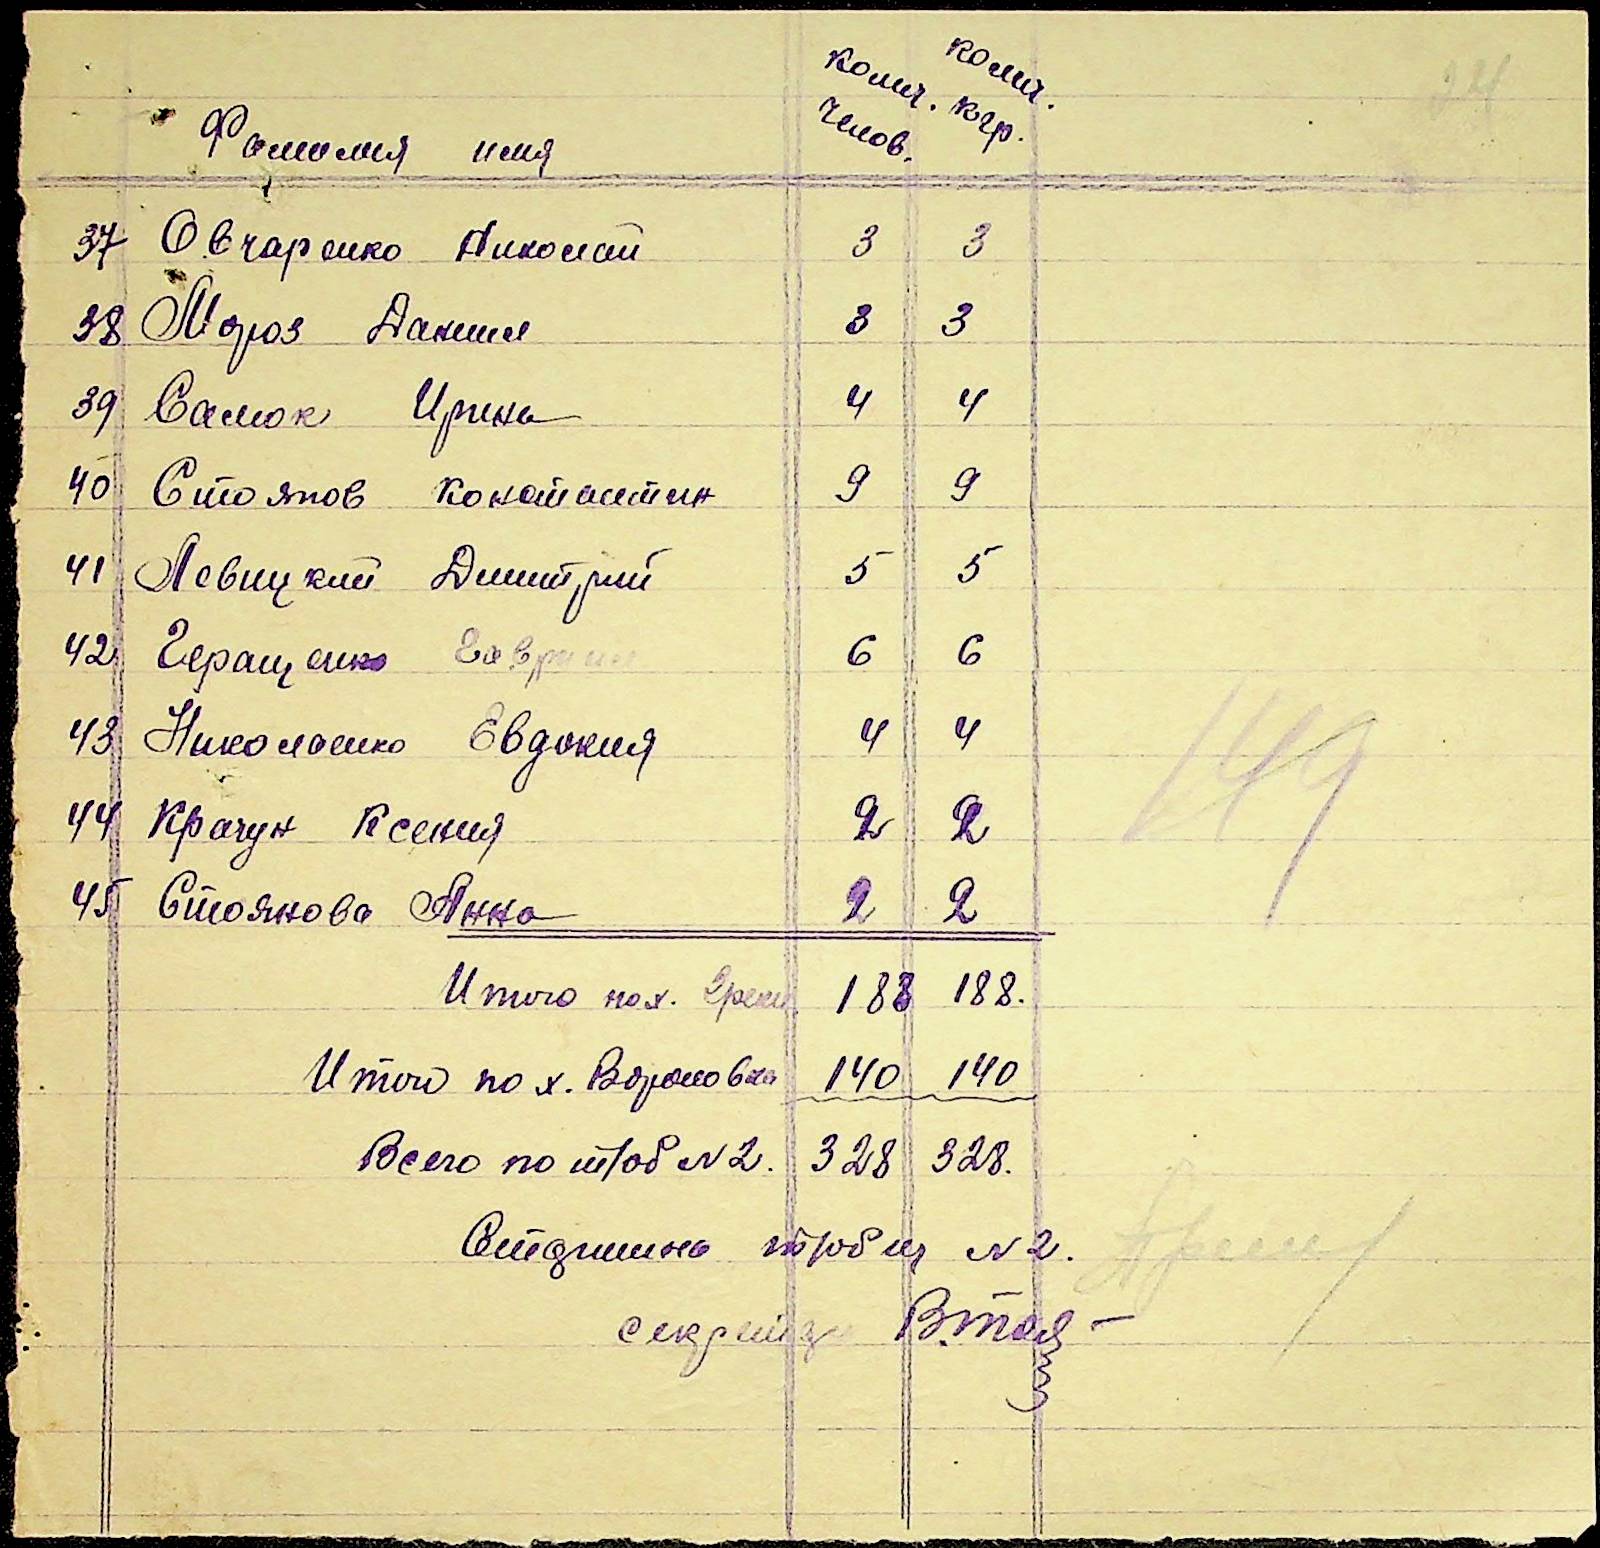 колич. колич.
челов. кгр.
Фамилия имя
37 Овчаренко Николай 3 3
38 Мороз Даниил 3 3
39 Самок Ирина 4 4
40 Стоянов Константин 9 9
41 Левицкий Димитрий 5 5
42 Геращенко Гавриил 6 6
43 Николаенко Евдокия 4 4
44 Крачун Ксения 2 2
45 Стоянова Анна 2 2
Итого по х. 188 188.
Итого по х. Вороновка 140 140
Всего по №2. 328 328.
Старшина №2.
секретарь
149